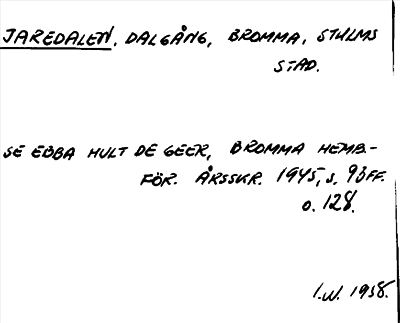 JAREDALEN, DALGÅNG, BROMMA, STHLMS
STAD.
SE EBBA HULT DE GEER, BROMMA HEMB.-
FÖR. ÅRSSKR. 1945, s. 93 FF.
o. 128.
I.W. 1958.